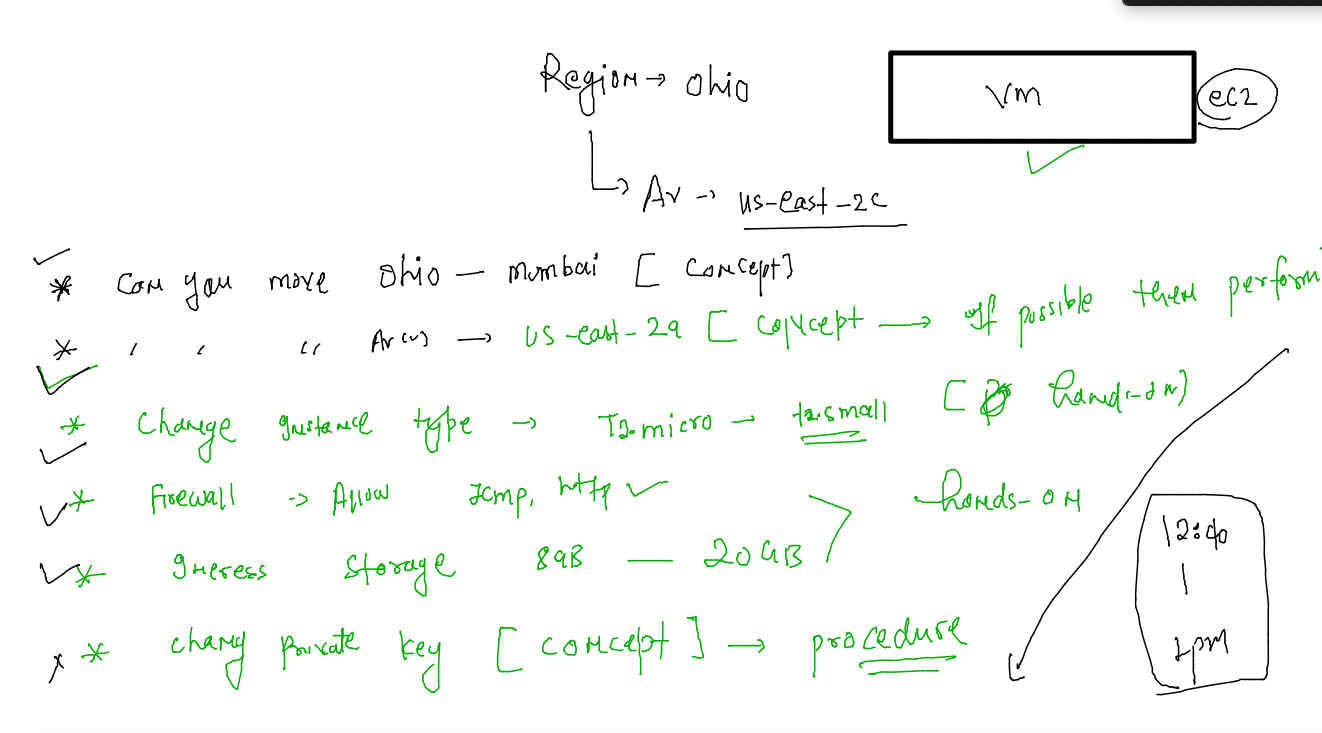 Region → Ohio
VM
ec2
Az → us-east-2c
* Can you move Ohio — mumbai [ concept ]
* " " " Az(c) → us-east-2a [ concept → if possible then perform
[ hand-on ]
* Change instance type → T2.micro — t2.small
* Firewall → Allow icmp, http
hands-on
* increase storage 8GB — 20GB
* change private key [ concept ] → procedure
12:40
1
1pm